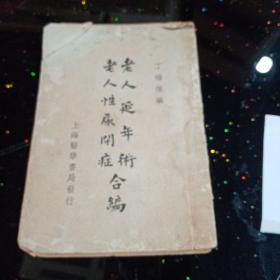 丁福保編
老人延年術
老人性尿閉症
合編
上海醫學書局發行